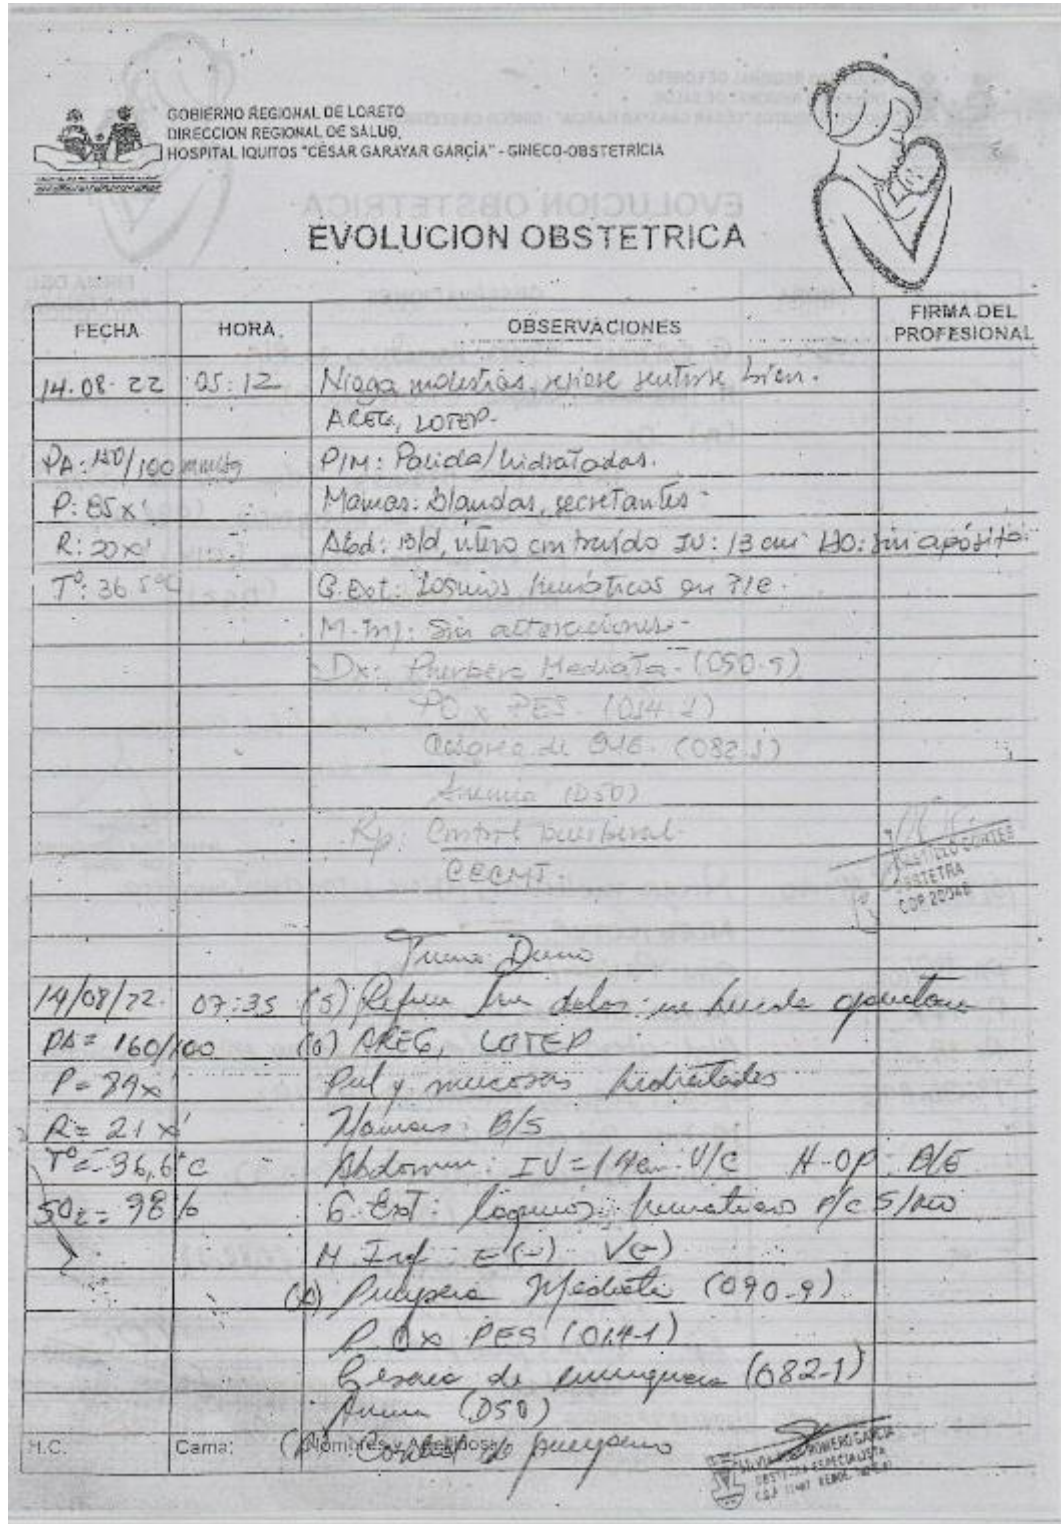 GOBIERNO REGIONAL DE LORETO
DIRECCION REGIONAL DE SALUD
HOSPITAL IQUITOS "CÉSAR GARAYAR GARCÍA" - GINECO-OBSTETRICIA
EVOLUCION OBSTETRICA
FECHA HORA OBSERVACIONES FIRMA DEL PROFESIONAL
14.08.22 05:12 Niega molestias, refiere sentirse bien.
AREG, LOTEP.
PA: /100 mmHg P/M: Palida/hidratadas.
P: 85x' Mamas: blandas, secretantes
R: 20x' Abd: B/d, útero contraido IU: 13 cm HO: sin apósito.
T°: 36.5°C G.Ext: Loquios hemáticos en
M. Inf: Sin alteraciones.
Dx: Puerpera Mediata
PO x PES (O14.1)
Cesarea de (O82.1)
Anemia (D50)
Rp: Control puerperal
CASTILLO CORTES
OBSTETRA
COP
Turno Diurno
14/08/22 07:35 (S) Refiere dolor en herida operatoria
PA = 160/100 (O) AREG, LOTEP
P = 89x' Piel y mucosas hidratadas
R = 21x' Mamas: B/S
T° = 36,6°C Abdomen: IU = 14cm U/C H-OP
SO2 = 98% G. Ext: loquios hematicos
M Inf: E(-) V(-)
(A) Puerpera Mediata (O90-9)
P.O x PES (O14-1)
Cesarea de emergencia (O82-1)
Anemia (D50)
H.C. Cama: Nombres y Apellidos:
(P) Control de puerperio
ROMERO GARCIA
OBSTETRA ESPECIALISTA